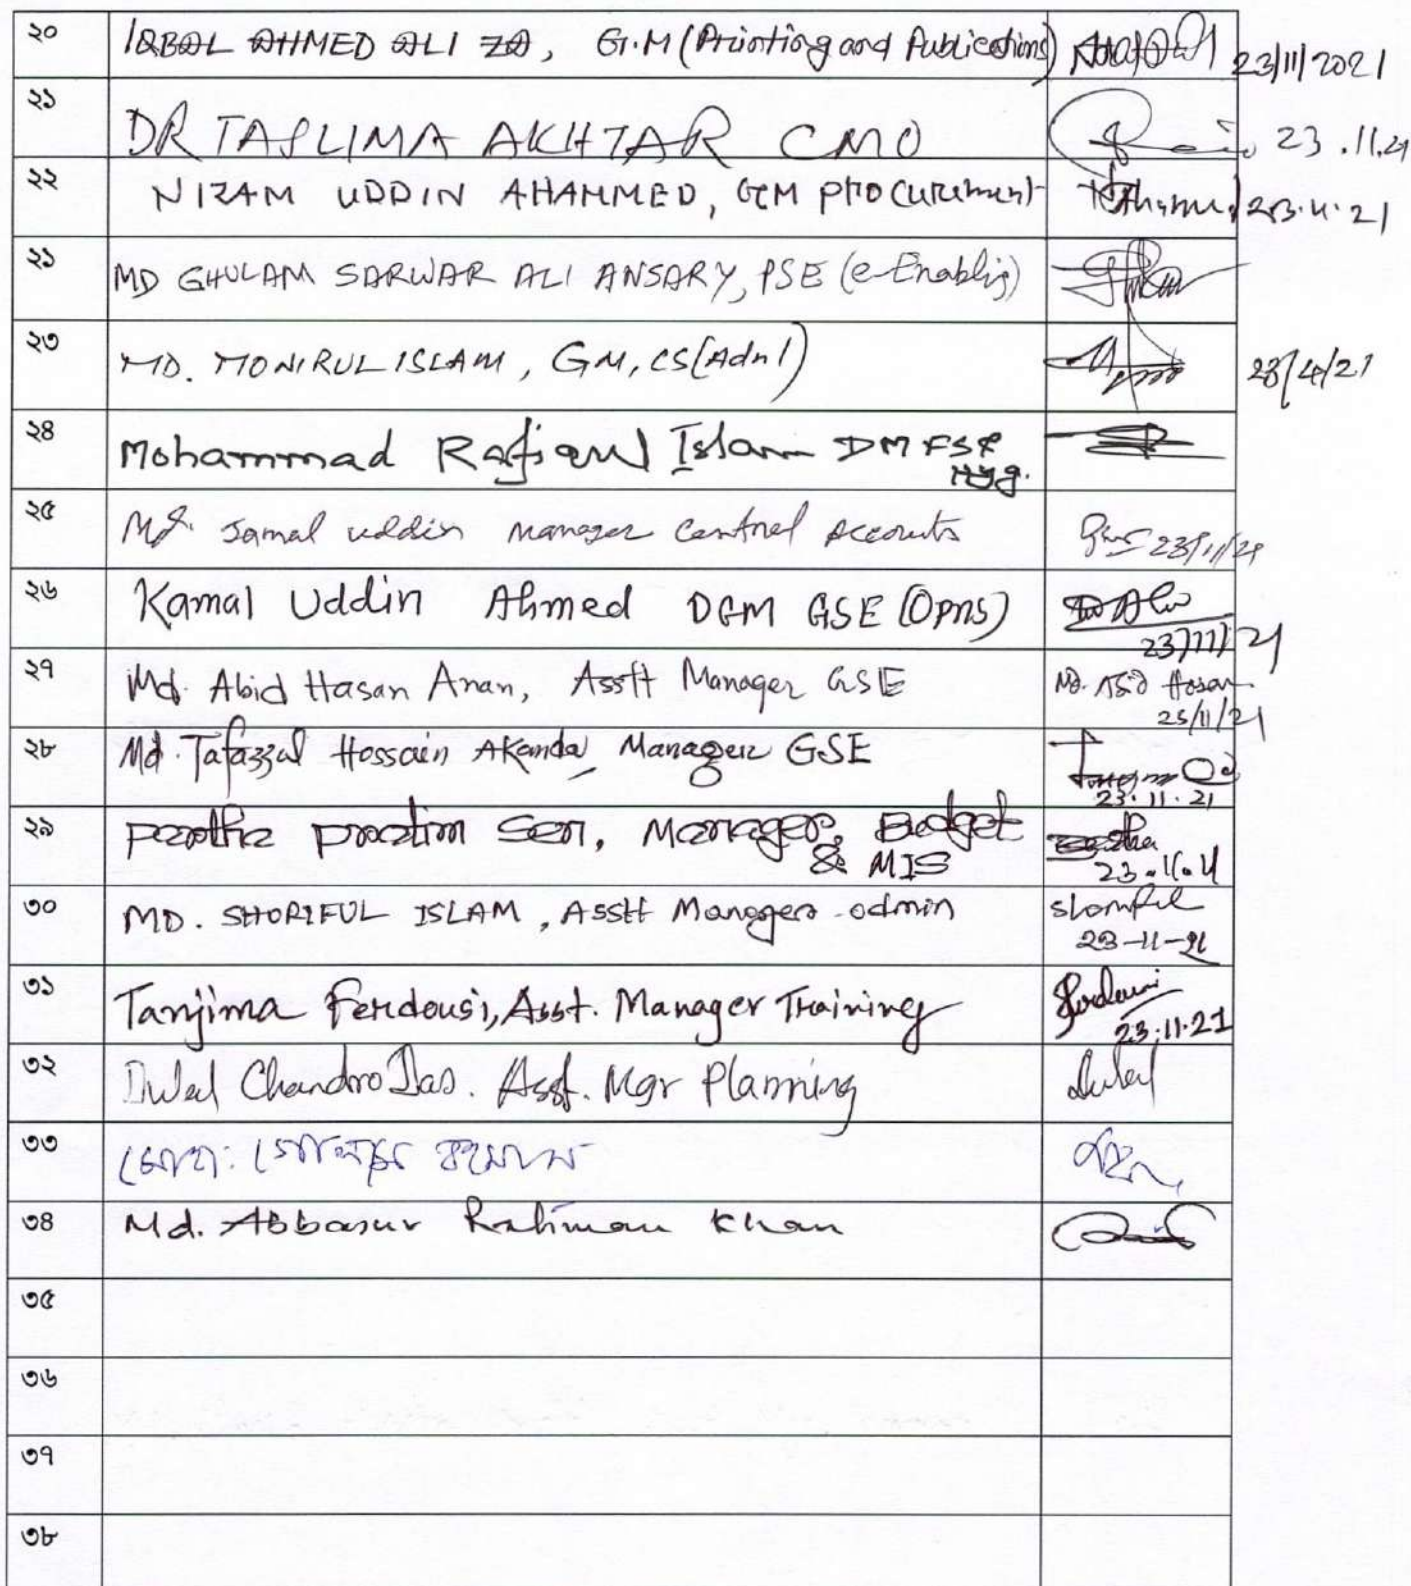 ২০ IQBAL AHMED ALI ZA, G.M (Printing and Publications) 23/11/2021
২১ DR TASLIMA AKHTAR CMO 23.11.21
২২ NIZAM UDDIN AHAMMED, GM Procurement 23.11.21
২১ MD GHULAM SARWAR ALI ANSARY, PSE (e-Enablig)
২৩ MD. MONIRUL ISLAM, GM, CS(Adnl)
২৪ Mohammad Rafiqul Islam DM FSR
Hyg.
২৫ Md. Jamal uddin manager Central Accounts 23/11/21
২৬ Kamal Uddin Ahmed DGM GSE (Opns)
23/11/21
২৭ Md. Abid Hasan Anan, Asstt Manager GSE Md. Abid Hasan
25/11/21
২৮ Md. Tafazzal Hossain Akanda, Manager GSE
23.11.21
২৯ Partha Pratim Sen, Manager, Budget
& MIS 23.11.21
৩০ MD. SHORIFUL ISLAM, Asstt Manager admin
23-11-21
৩১ Tanjima Ferdousi, Asst. Manager Training Ferdousi
23.11.21
৩২ Dulal Chandro Das. Asst. Mgr Planning Dulal
৩৩ মোহা: রহমান
৩৪ Md. Abbasur Rahman Khan
৩৫
৩৬
৩৭
৩৮